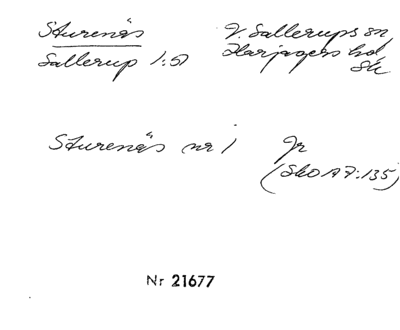 Sturenäs V. Sallerups sn
Sallerup 1:51 Harjagers hd
Sk
Sturenäs nr 1 Jr
(SkO A7:135)
Nr 21677